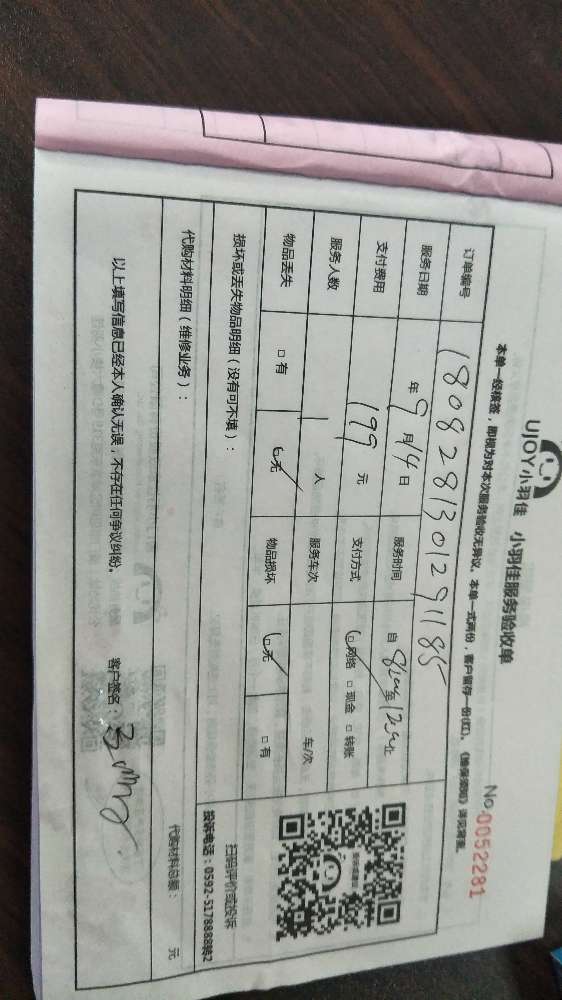 UJOY小羽佳 小羽佳服务验收单
No.0052281
本单一经核签，即视为对本次服务验收无异议。本单一式两份，客户留存一份(红)。《维保须知》详见背面。
订单编号 1808281301291185
服务日期 年 9 月 14 日 服务时间 自 至
支付费用 199 元 支付方式 □网络 □现金 □转账
服务人数 1 人 服务车次 车/次
物品丢失 □有 □无 物品损坏 □无 □有
损坏或丢失物品明细（没有可不填）：
扫码评价或投诉
投诉电话：0592-5178888转2
代购材料明细（维修业务）：
代购材料总额： 元
以上填写信息已经本人确认无误，不存在任何争议纠纷。 客户签名：